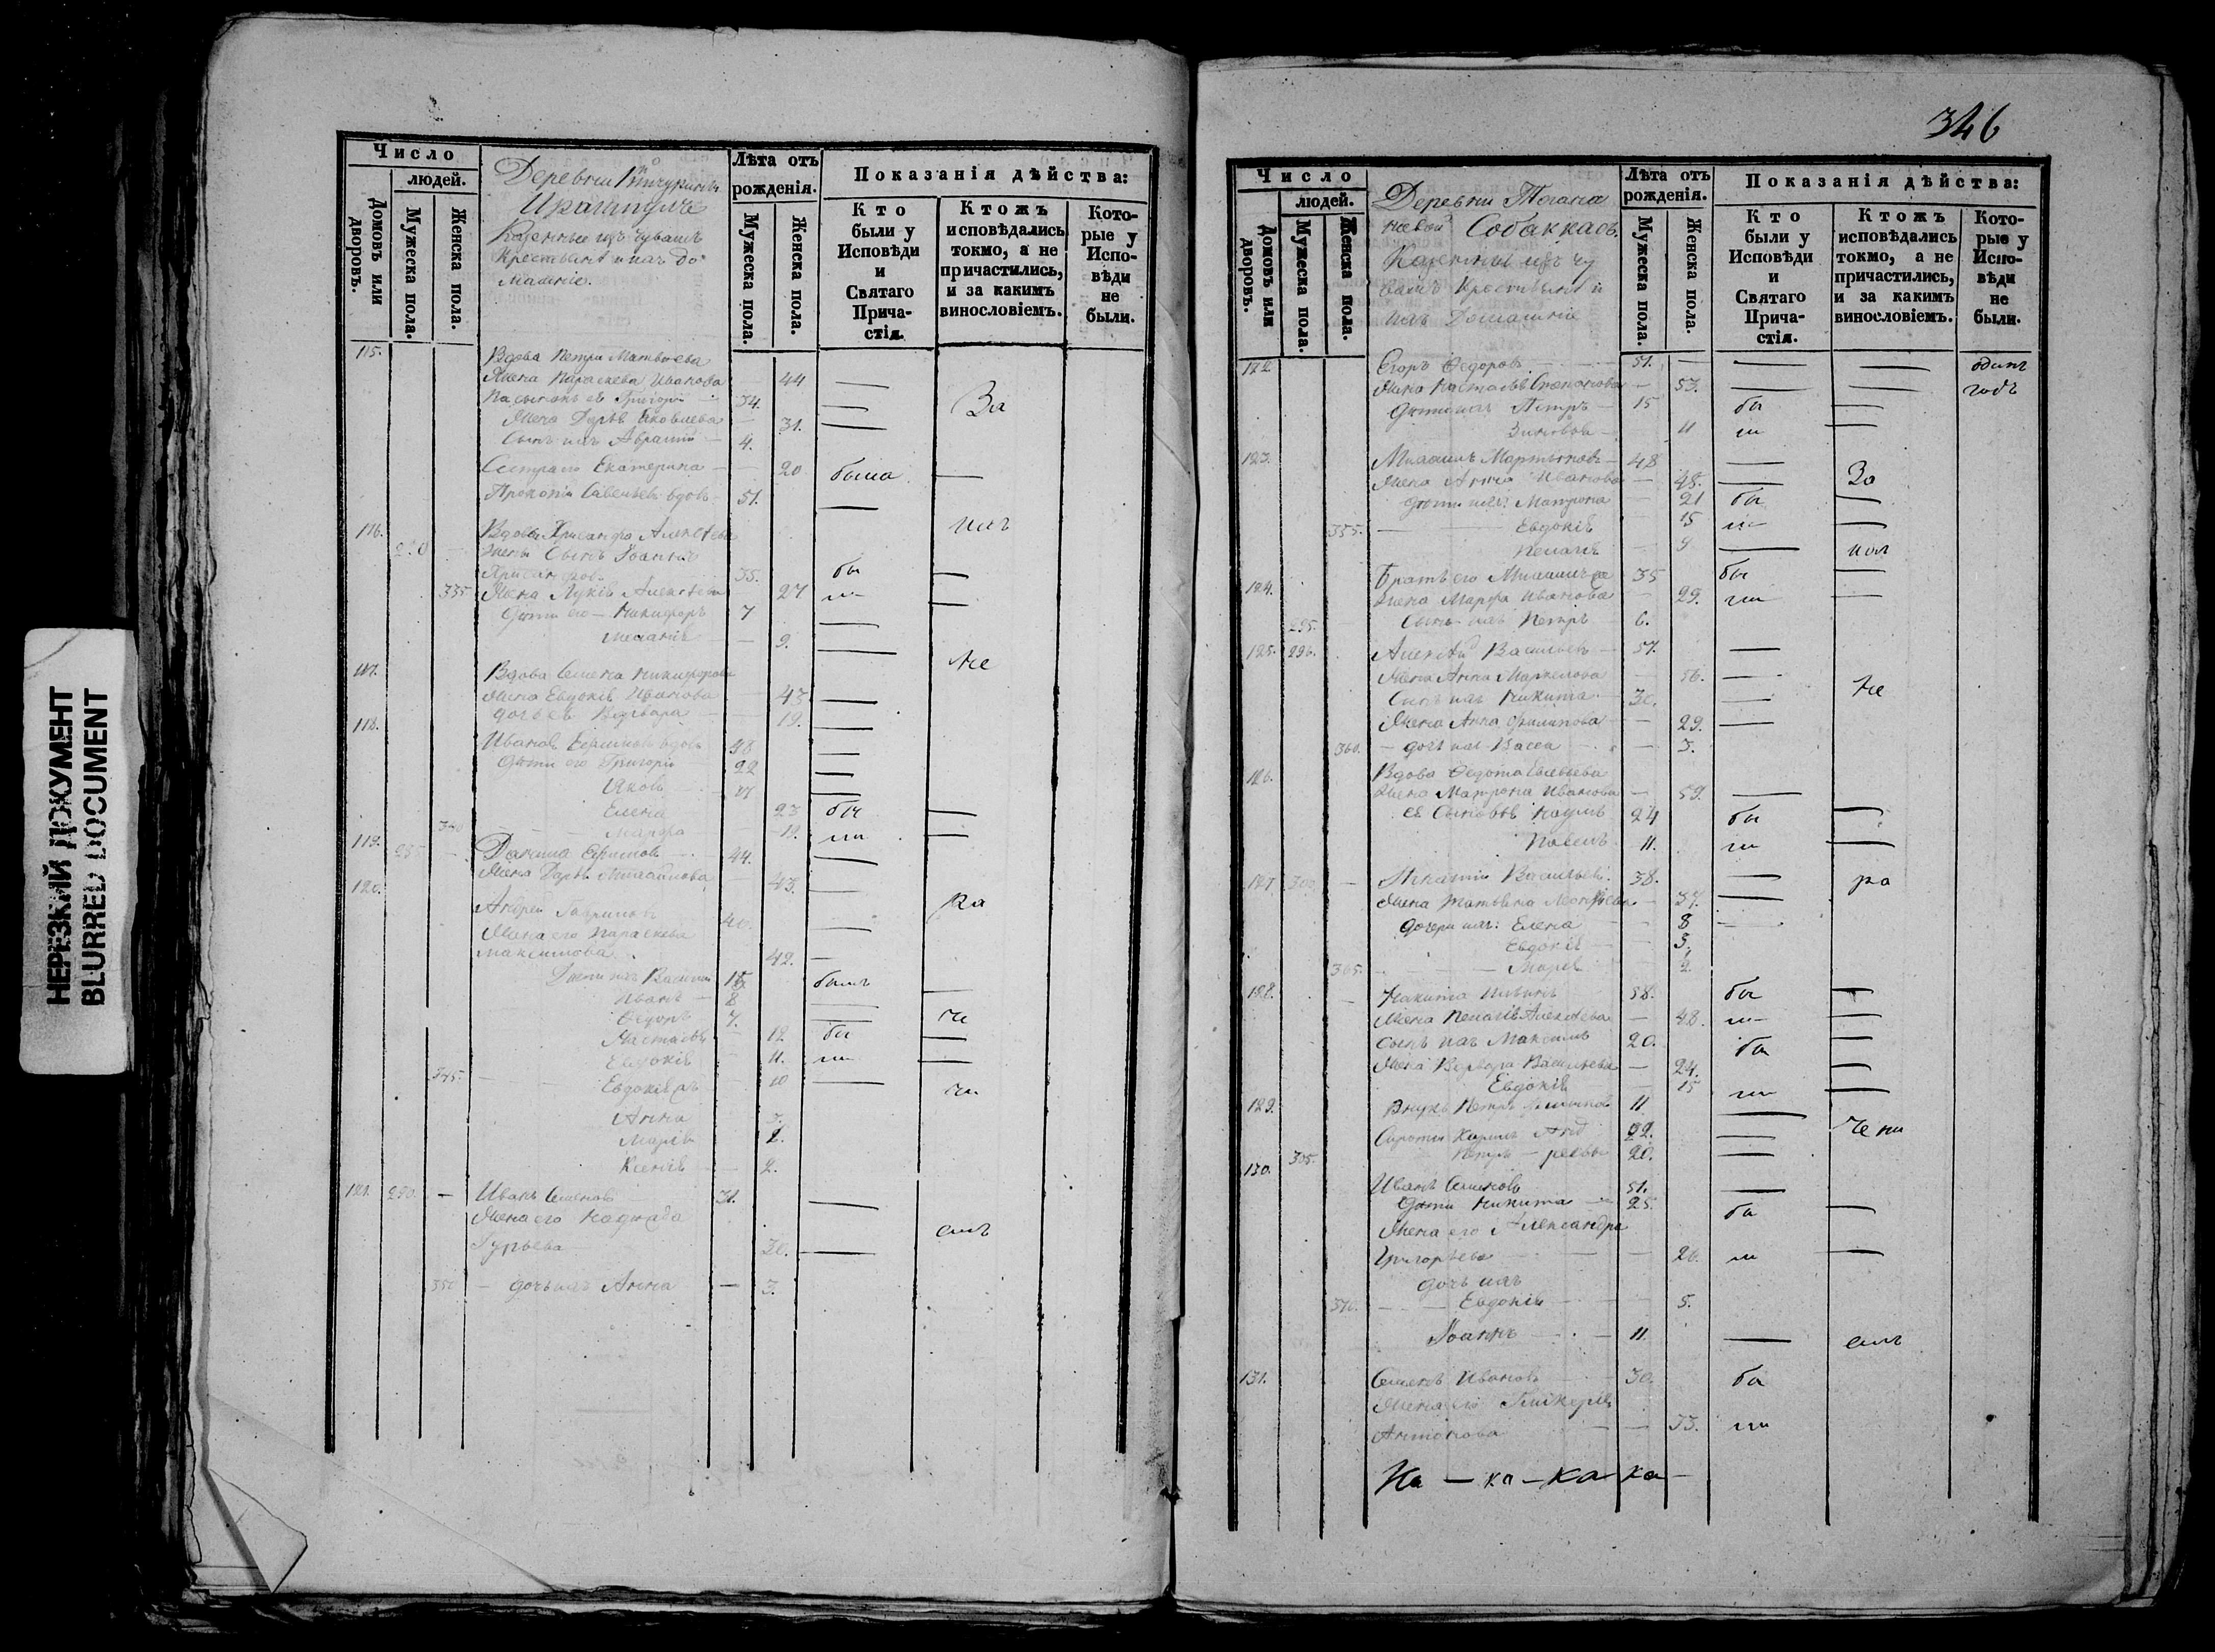 НЕРЕЗКИЙ ДОКУМЕНТ
BLURRED DOCUMENT
Число
людей.
Домовъ или дворовъ.
Мужеска пола.
Женска пола.
Деревни
Казенные изъ чувашъ
крестьяне и ихъ до
машніе.
Лѣта отъ рожденія.
Мужеска пола.
Женска пола.
Показанія дѣйства:
Кто были у Исповѣди и Святаго Причастія.
Ктожъ исповѣдались токмо, а не причастились, и за какимъ винословіемъ.
Которые у Исповѣди не были.
115. Вдова Петра Матвѣева
Жена Параскева Иванова — 44
Пасынокъ ея Григорій 34. За
Жена Дарья Яковлева — 31.
Сынъ ихъ 4.
Сестра его Екатерина — 20 была
вдовъ 51.
116. Вдова Хрисанфа Алексѣева ихъ
жены Сынъ Іоаннъ
Хрисанфовъ 35. бы
335 Жена Алексѣева 27 ли
Дѣти его Никифоръ 7
9.
117. Вдова Семена Никифорова не
Жена Евдокія Иванова 43
дочь ея Варвара 19.
118.
Ефимовъ вдовъ 48
Дѣти его Григорій 22
Яковъ
Елена 23 бы
340 Марфа ли
119. 285 Данила Ефимовъ 44.
Жена Дарья Михайлова 43.
120. Андрей 40. ра
Жена его Параскева
Максимова 42.
Дѣти ихъ Василій 15 былъ
Иванъ 8
Ѳедоръ 7. че
Настасья 12 бы
Евдокія 11. ли
345. Евдокія 10 ни
Анна 3.
Марья 2.
Ксенія 2.
121. 290. Иванъ Семеновъ 31.
Жена его Надежда емъ
Гурьева 30.
350 — дочь ихъ Анна — 3.
346
Число
людей.
Домовъ или дворовъ.
Мужеска пола.
Женска пола.
Деревни
Собаккасъ.
Казенные изъ чу
вашъ крестьяне и
ихъ Домашніе
Лѣта отъ рожденія.
Мужеска пола.
Женска пола.
Показанія дѣйства:
Кто были у Исповѣди и Святаго Причастія.
Ктожъ исповѣдались токмо, а не причастились, и за какимъ винословіемъ.
Которые у Исповѣди не были.
122. Егоръ Ѳедоровъ 51. — одинъ
Жена Настасья Степанова — 53. годъ
Дѣти ихъ Петръ — 15 бы
11 ли
123. Михаилъ Мартыновъ — 48
Жена Анна Иванова — 48. За
Дѣти ихъ: Матрона 21 бы
355. Евдокія 15 ли
ихъ
124. Братъ его Михаилъ 35 бы
Жена Марфа Иванова 29. ли
295. Сынъ ихъ Петръ 6.
125. 296. Алексѣй Васильевъ 57.
Жена Анна Маркелова 56.
Сынъ ихъ Никита 30. не
Жена Анна Филипова 29.
360. — дочь ихъ Васса — 3.
126. Вдова Ѳедота
Жена Матрона Иванова 59.
Ея Сыновья Наумъ 24 бы
Павелъ 11. ли
127 300. Васильевъ 38. ра
Жена 37.
дочери ихъ: Елена 8
Евдокія 3,
365. — Марья 2
128. Никита 58. бы
Жена Пелагія Алексѣева — 48. ли
Сынъ ихъ Максимъ 20. бы
Жена Варвара Васильева — 24.
Евдокія 15 ли
129. Внукъ Петръ 11
Сироты Кирилъ Анд 22. чени
305. Петръ — реевы 20.
130. Иванъ Семеновъ 51.
Дѣти Никита 25. бы
Жена его Александра
Григорьева 26. ли
дочь ихъ
370. Евдокія 5.
Іоаннъ — 11 емъ
131. Семенъ Ивановъ 30. бы
Жена его Гликерія
Антонова 33. ли
На — ка — ка — ка —